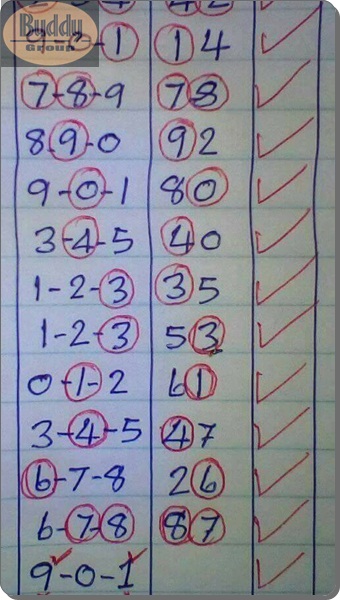 Buddy
Group
9-0-1 14
7-8-9 78
8-9-0 92
9-0-1 80
3-4-5 40
1-2-3 35
1-2-3 53
0-1-2 61
3-4-5 47
6-7-8 26
6-7-8 87
9-0-1